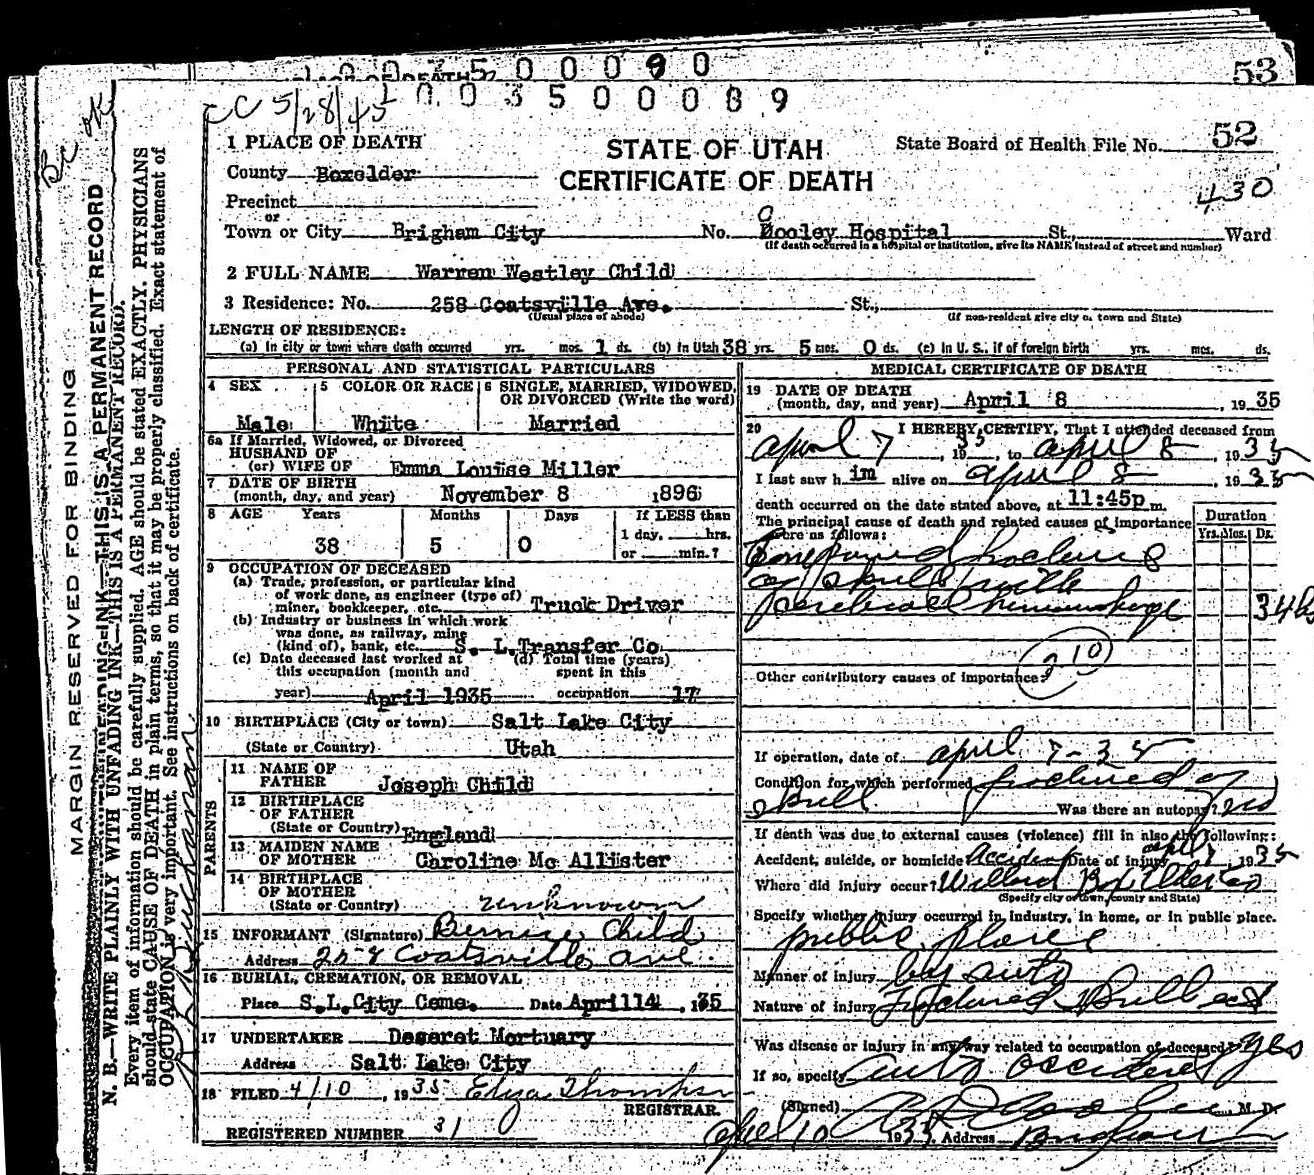 0 0 3 5 0 0 0 9 0
53
CC 5/28/45
1 0 0 3 5 0 0 0 8 9
Bc ok
1 PLACE OF DEATH
STATE OF UTAH
CERTIFICATE OF DEATH
State Board of Health File No. 52
430
County Boxelder
Precinct
or
Town or City Brigham City No. Cooley Hospital St., Ward
(If death occurred in a hospital or institution, give its NAME instead of street and number)
2 FULL NAME Warren Westley Child
3 Residence: No. 258 Coatsville Ave. St.,
(Usual place of abode) (If non-resident give city or town and State)
LENGTH OF RESIDENCE:
(a) In city or town where death occurred yrs. mos. 1 ds. (b) In Utah 38 yrs. 5 mos. 0 ds. (c) In U. S., if of foreign birth yrs. mos. ds.
PERSONAL AND STATISTICAL PARTICULARS
4 SEX 5 COLOR OR RACE 6 SINGLE, MARRIED, WIDOWED, OR DIVORCED (Write the word)
Male White Married
6a If Married, Widowed, or Divorced
HUSBAND OF
(or) WIFE OF Emma Louise Miller
7 DATE OF BIRTH
(month, day, and year) November 8 1896
8 AGE Years Months Days If LESS than
1 day, hrs.
38 5 0 or min.?
9 OCCUPATION OF DECEASED
(a) Trade, profession, or particular kind
of work done, as engineer (type of)
miner, bookkeeper, etc. Truck Driver
(b) Industry or business in which work
was done, as railway, mine
(kind of), bank, etc. S. L. Transfer Co.
(c) Date deceased last worked at
this occupation (month and
year) April 1935
(d) Total time (years)
spent in this
occupation 17
10 BIRTHPLACE (City or town) Salt Lake City
(State or Country) Utah
PARENTS
11 NAME OF
FATHER Joseph Child
12 BIRTHPLACE
OF FATHER
(State or Country) England
13 MAIDEN NAME
OF MOTHER Caroline Mc Allister
14 BIRTHPLACE
OF MOTHER
(State or Country) unknown
15 INFORMANT (Signature) Bernice Child
Address 258 Coatsville Ave.
16 BURIAL, CREMATION, OR REMOVAL
Place S.L.City Ceme. Date April 14, 1935
17 UNDERTAKER Deseret Mortuary
Address Salt Lake City
18 FILED 4/10, 1935 Eliza Thompson
REGISTRAR.
REGISTERED NUMBER 31
MEDICAL CERTIFICATE OF DEATH
19 DATE OF DEATH
(month, day, and year) April 8, 1935
20 I HEREBY CERTIFY, That I attended deceased from
April 7, 1935, to April 8, 1935
I last saw h im alive on April 8, 1935
death occurred on the date stated above, at 11:45p m.
The principal cause of death and related causes of importance
were as follows:
Duration
Yrs. Mos. Ds.
Compound fracture
of skull with
cerebral hemorrhage
210
Other contributory causes of importance:
If operation, date of April 7-35
Condition for which performed fractured of
skull Was there an autopsy? no
If death was due to external causes (violence) fill in also the following:
Accident, suicide, or homicide Accident Date of injury April 7, 1935
Where did injury occur? Willard Box Elder Co
(Specify city or town, county and State)
Specify whether injury occurred in industry, in home, or in public place.
public place
Manner of injury by auto
Nature of injury Fractured Skull
Was disease or injury in any way related to occupation of deceased? yes
If so, specify auto accident
(Signed) M. D.
April 10 1935 Address Brigham
MARGIN RESERVED FOR BINDING
N. B.—WRITE PLAINLY WITH UNFADING INK—THIS IS A PERMANENT RECORD.
Every item of information should be carefully supplied. AGE should be stated EXACTLY. PHYSICIANS
should state CAUSE OF DEATH in plain terms, so that it may be properly classified. Exact statement of
OCCUPATION is very important. See instructions on back of certificate.